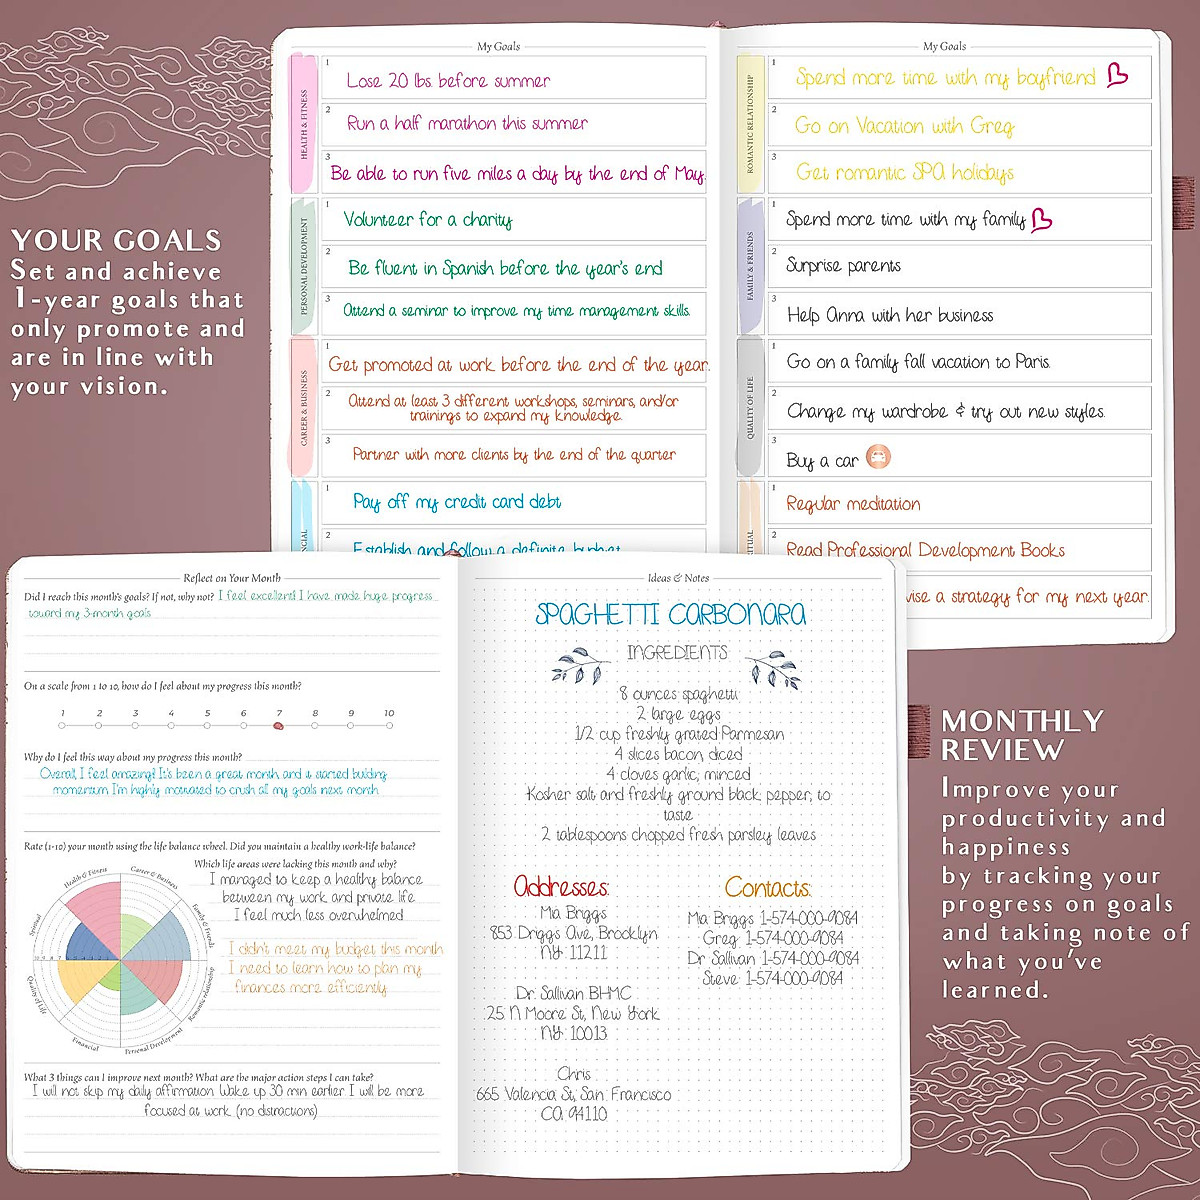 My Goals
HEALTH & FITNESS
1
Lose 20 lbs. before summer
2
Run a half marathon this summer
3
Be able to run five miles a day by the end of May.
PERSONAL DEVELOPMENT
1
Volunteer for a charity
2
Be fluent in Spanish before the year's end
3
Attend a seminar to improve my time management skills.
CAREER & BUSINESS
1
Get promoted at work before the end of the year.
2
Attend at least 3 different workshops, seminars, and/or
trainings to expand my knowledge.
3
Partner with more clients by the end of the quarter
1
Pay off my credit card debt
2
Establish and follow a definite budget
My Goals
ROMANTIC RELATIONSHIP
1
Spend more time with my boyfriend
2
Go on Vacation with Greg
3
Get romantic SPA holidays
FAMILY & FRIENDS
1
Spend more time with my family
2
Surprise parents
3
Help Anna with her business
QUALITY OF LIFE
1
Go on a family fall vacation to Paris.
2
Change my wardrobe & try out new styles.
3
Buy a car
1
Regular meditation
2
Read Professional Development Books
a strategy for my next year.
YOUR GOALS
Set and achieve
1-year goals that
only promote and
are in line with
your vision.
Reflect on Your Month
Did I reach this month's goals? If not, why not? I feel excellent! I have made huge progress
toward my 3-month goals
On a scale from 1 to 10, how do I feel about my progress this month?
1 2 3 4 5 6 7 8 9 10
Why do I feel this way about my progress this month?
Overall, I feel amazing! It's been a great month, and it started building
momentum. I'm highly motivated to crush all my goals next month.
Rate (1-10) your month using the life balance wheel. Did you maintain a healthy work-life balance?
Which life areas were lacking this month and why?
I managed to keep a healthy balance
between my work and private life.
I feel much less overwhelmed
I didn't meet my budget this month
I need to learn how to plan my
finances more efficiently.
Health & Fitness
Career & Business
Family & Friends
Romantic relationship
Personal Development
Financial
Quality of Life
Spiritual
What 3 things can I improve next month? What are the major action steps I can take?
I will not skip my daily affirmation. Wake up 30 min earlier. I will be more
focused at work. (no distractions)
Ideas & Notes
SPAGHETTI CARBONARA
INGREDIENTS
8 ounces spaghetti
2 large eggs
1/2 cup freshly grated Parmesan
4 slices bacon, diced
4 cloves garlic, minced
Kosher salt and freshly ground black pepper, to
taste
2 tablespoons chopped fresh parsley leaves
Addresses:
Ma Briggs
853 Driggs Ave, Brooklyn
NY 11211
Dr. Sallivan BHMC
25 N Moore St, New York
NY 10013
Chris
665 Valencia St, San Francisco
CA 94110
Contacts:
Ma Briggs 1-574-000-9084
Greg 1-574-000-9084
Dr Sallivan 1-574-000-9084
Steve 1-574-000-9084
MONTHLY
REVIEW
Improve your
productivity and
happiness
by tracking your
progress on goals
and taking note of
what you've
learned.